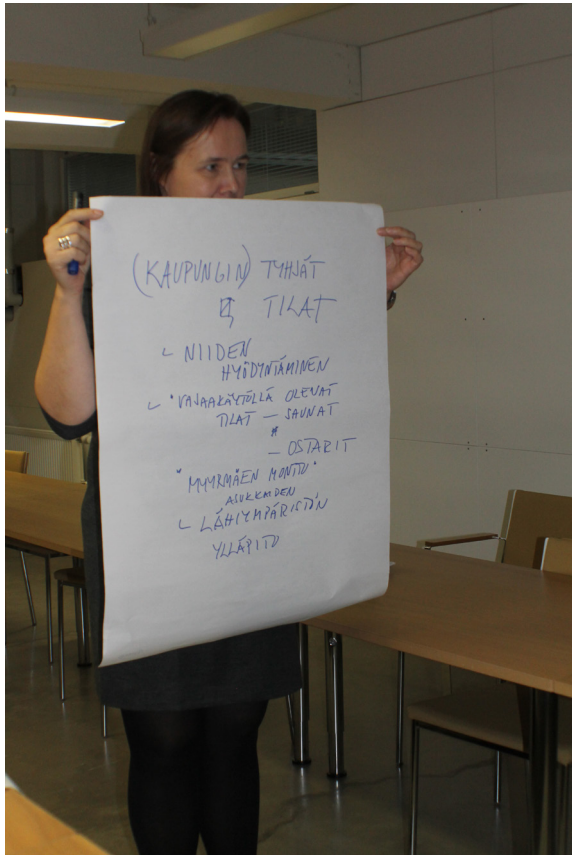 (KAUPUNGIN) TYHJÄT
TILAT
NIIDEN
HYÖDYNTÄMINEN
"VAJAAKÄYTÖLLÄ OLEVAT
TILAT – SAUNAT
– OSTARIT
"MYYRMÄEN MONTTU"
ASUKKAIDEN
LÄHIYMPÄRISTÖN
YLLÄPITO